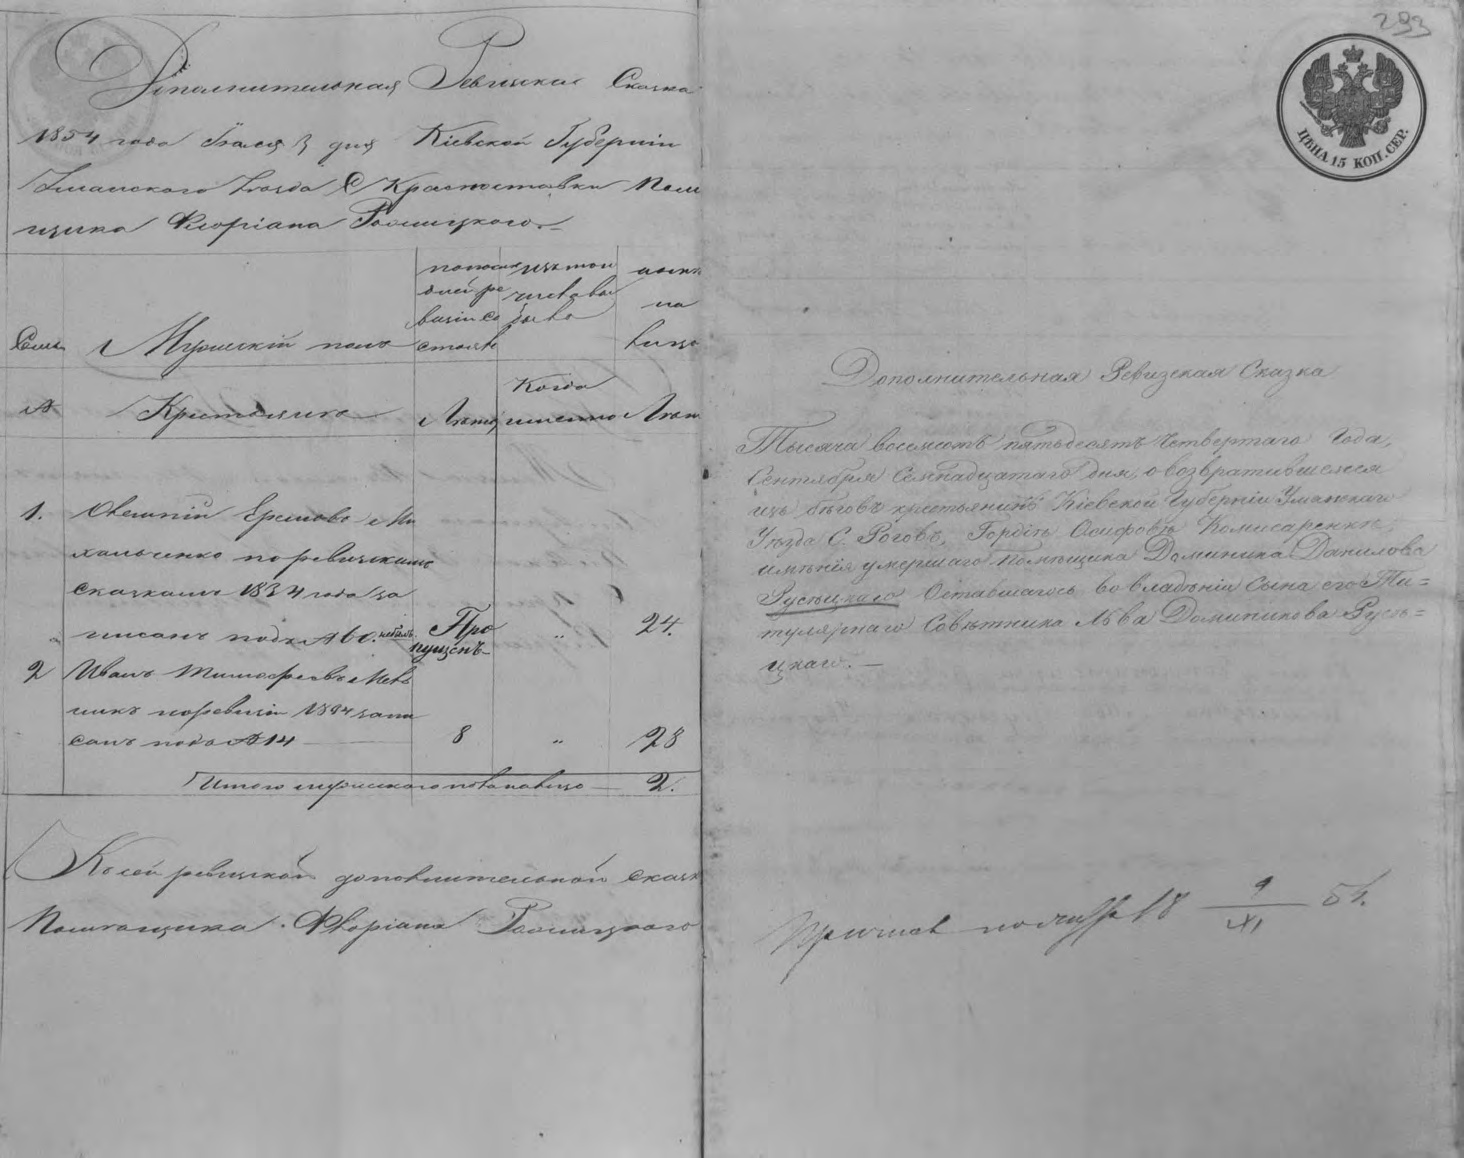 Дополнительная Ревизская Сказка
1854 года дня Кіевской Губерніи
Уманского Уезда С. Краснοставки Поме
щика Флоріана
Семьи
Мужескій полъ
по послѣ
дней ре
визіи со
стояло
изъ того
числа вы
было
нынѣ
на
лицо
№
Крестьяне
Лета
Когда
именно
Лета
1.
по ревизскимъ
сказкамъ 1834 года за
писанъ подъ № 60. небылъ
Про
пущенъ
"
24.
2
Иванъ Тимофеевъ
по ревизіи 1834 запи
санъ подъ № 14
8
"
28
Итого мужеского пола налицо
2.
Къ сей ревизкой дополнительной сказк
Помещика Флоріана
293
ЦѢНА 15 КОП. СЕР.
Дополнительная Ревизская Сказка
Тысяча восемсотъ пятьдесятъ четвертаго Года,
Сентября Семнадцатаго дня, о возвратившемся
изъ бѣговъ крестьянинѣ Кіевской Губерніи Уманскаго
Уѣзда С. Роговъ, Гордіѣ Осифовѣ Комисаренкѣ,
имѣнія умершаго Помѣщика Доминика Данилова
Русѣцкаго Оставшагось во владѣніи Сына его Ти=
тулярнаго Совѣтника Льва Доминикова Русѣ=
цкаго. —
18 9/XI 54.